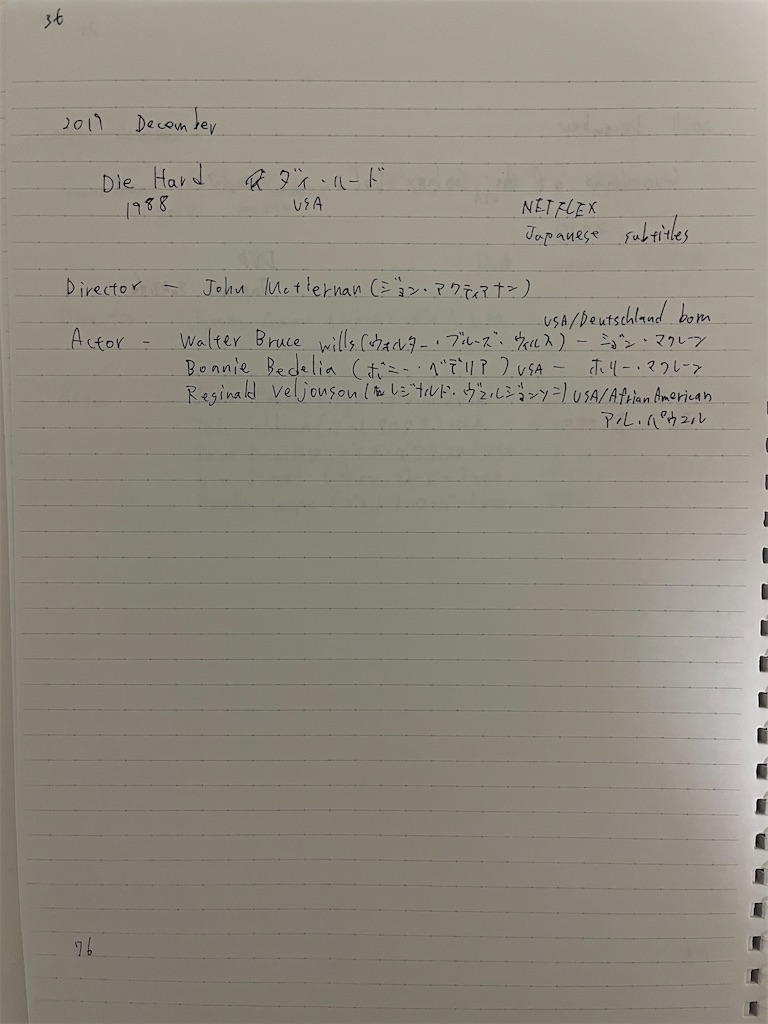 36
2019 December
Die Hard ダイ・ハード
1988 USA NETFLEX
Japanese subtitles
Director - John Mctiernan (ジョン・マクティアナン)
USA/Deutschland born
Actor - Walter Bruce wills (ウォルター・ブルーズ・ウィルス) - ジョン・マクレーン
Bonnie Bedelia (ボニー・ベデリア) USA - ホリー・マクレーン
Reginald Veljonson (レジナルド・ヴェルジョンソン) USA/Afrian American
アル・パウエル
76